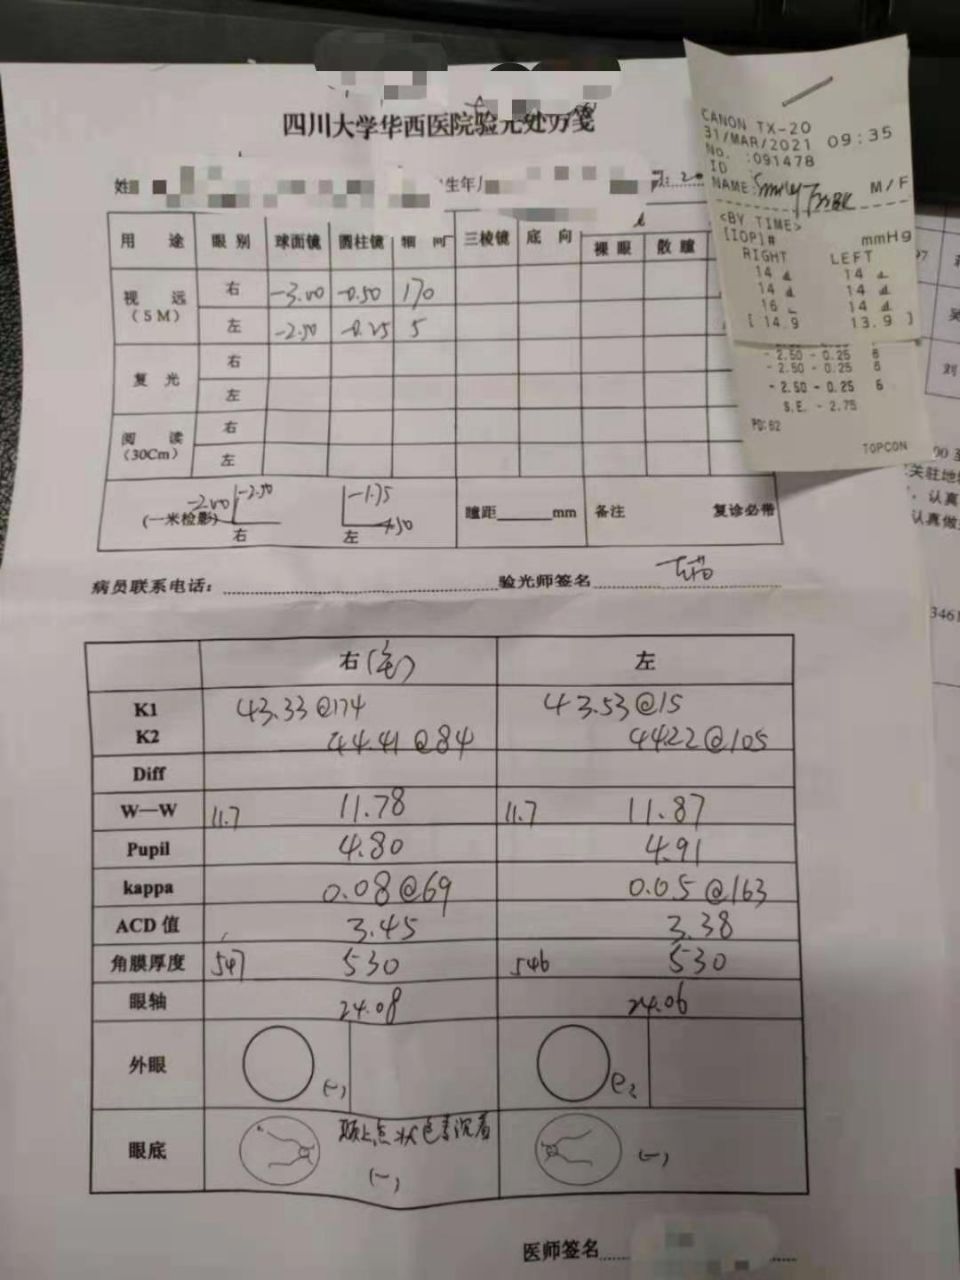 四川大学华西医院验光处方笺
姓
生年月
CANON TX-20
31/MAR/2021 09:35
No. :091478
ID
NAME: M/F
<BY TIME>
[IOP]# mmHg
RIGHT LEFT
14 14
14 14
16 14
[ 14.9 13.9 ]
- 2.50 - 0.25 6
- 2.50 - 0.25 6
- 2.50 - 0.25 6
S.E. - 2.75
PD:62
TOPCON
用 途 眼 别 球面镜 圆柱镜 轴 向 三棱镜 底 向 裸 眼 散 瞳
视 远 (5M) 右 -3.00 -0.50 170
左 -2.50 -0.25 5
复 光 右
左
阅 读 (30Cm) 右
左
(一米检影) -2.00 -2.50 右 -1.75 -1.50 左 瞳距 mm 备注 复诊必带
病员联系电话: 验光师签名
右 左
K1 43.33@174 43.53@15
K2 44.41@84 44.22@105
Diff
W—W 11.7 11.78 11.7 11.87
Pupil 4.80 4.91
kappa 0.08@69 0.05@163
ACD 值 3.45 3.38
角膜厚度 547 530 546 530
眼轴 24.08 24.06
外眼 (-)
眼底 颞上点状色素沉着 (-) (-)
医师签名